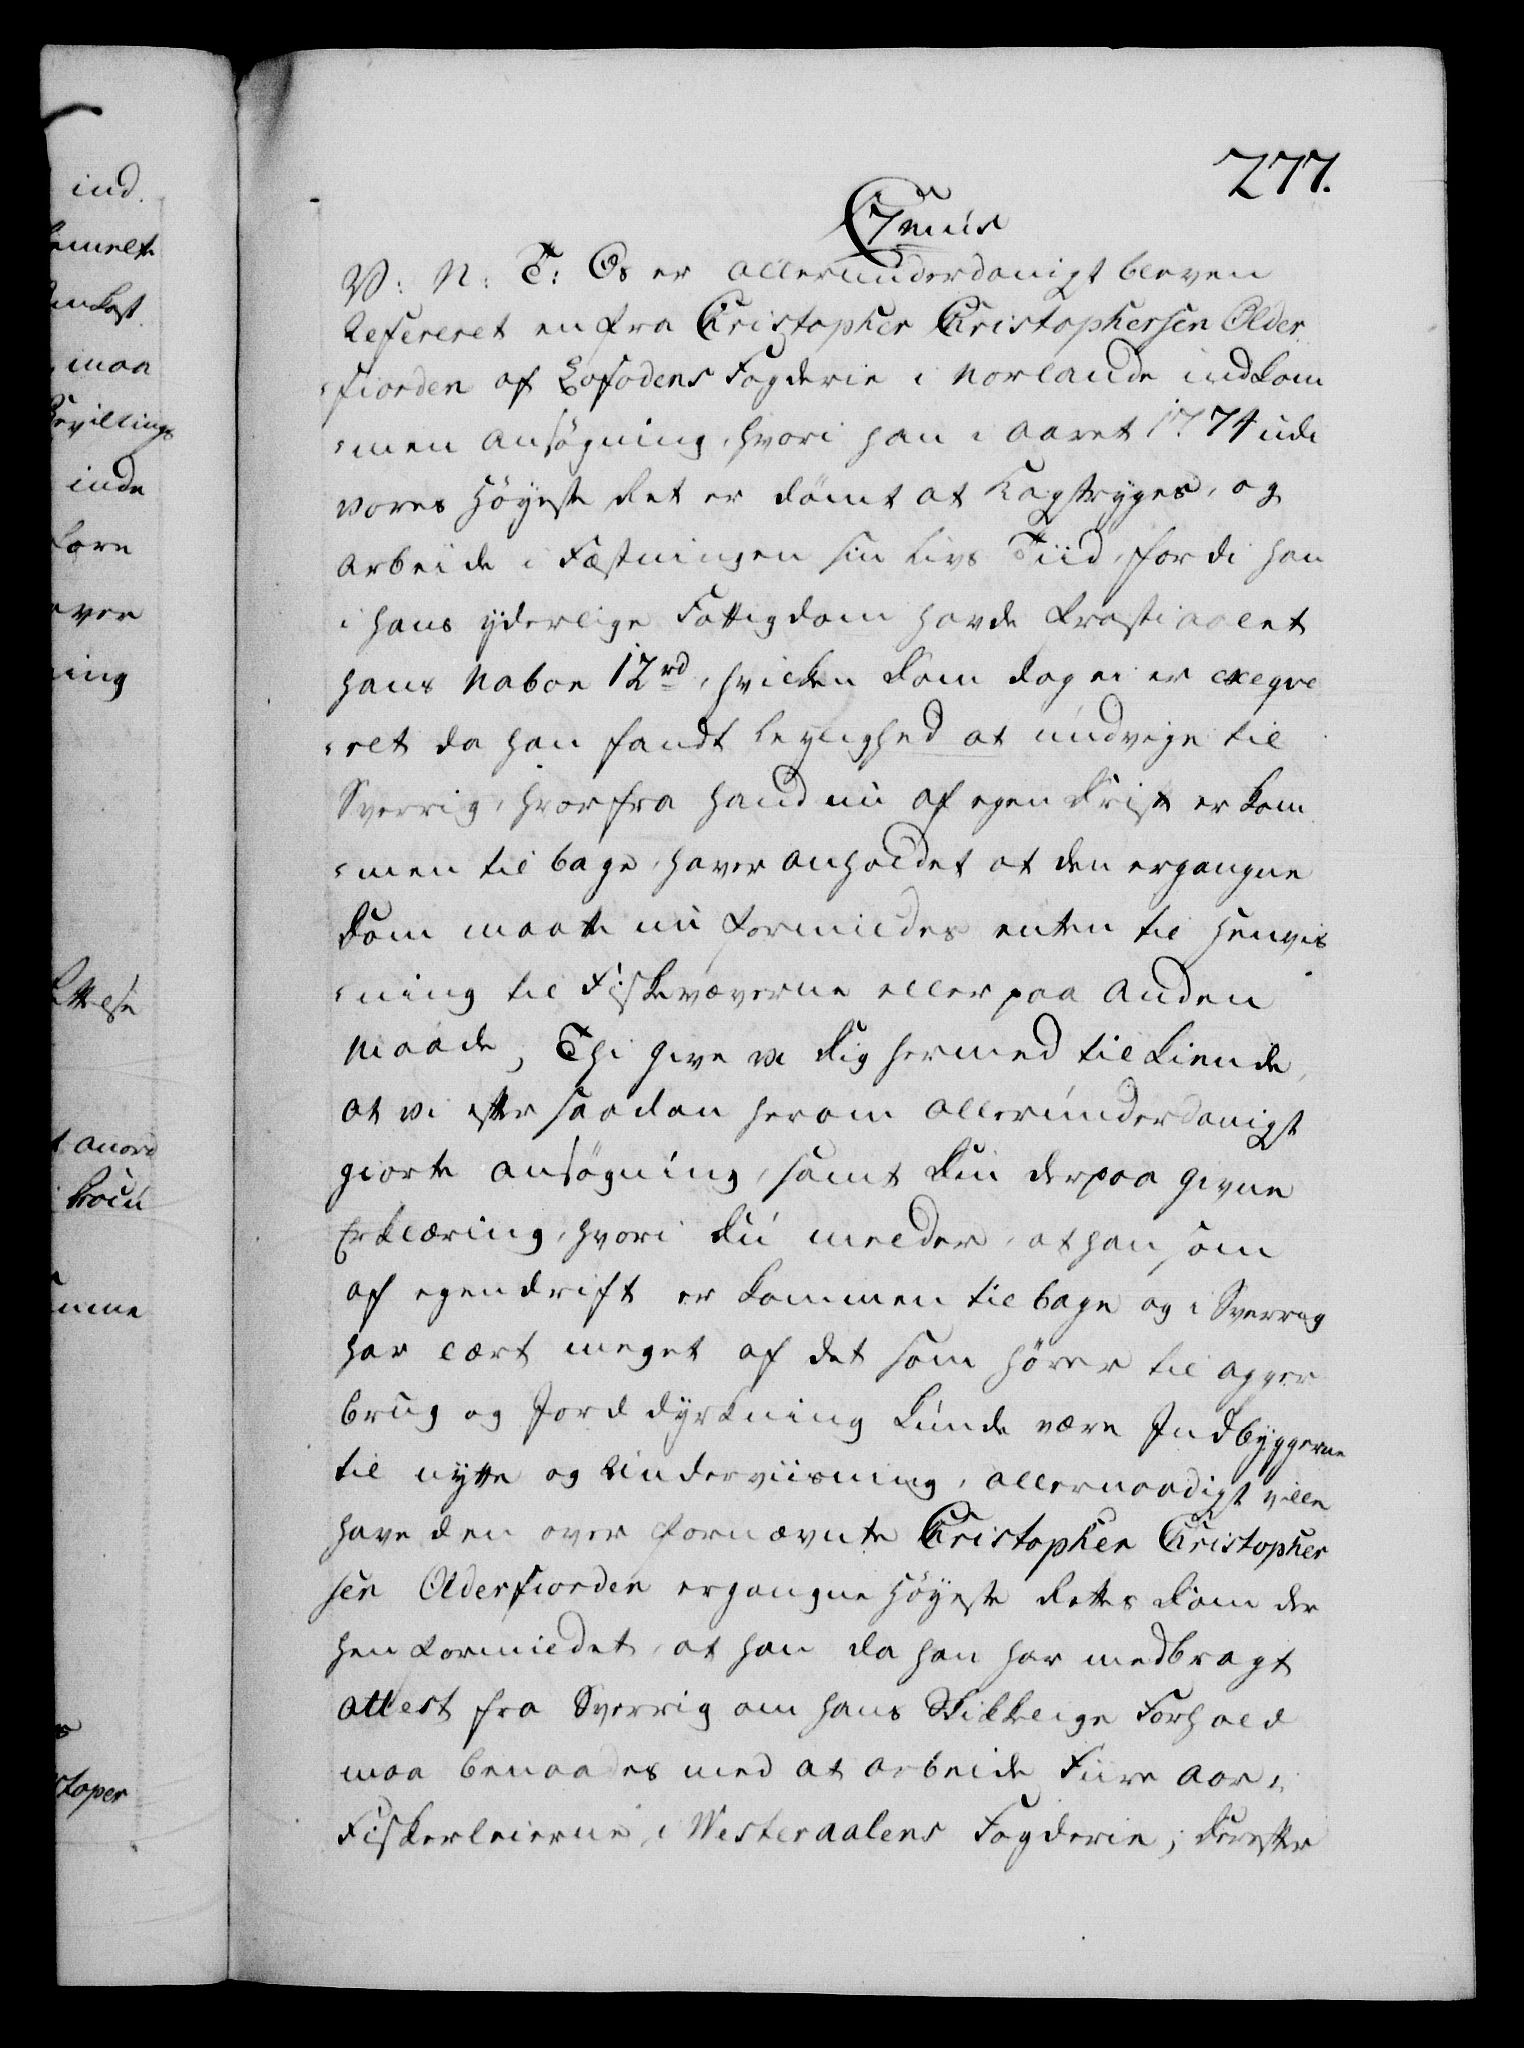 277.
C 7 mus
V: N: T: Os er allerunderdanigt bleven
Refereret en fra Christopher Christophersen Older
=fiorden af Lofodens Fogderie i Norlande indkom
=men ansøgning, hvori han i aaret 1774 ude
vores Høyeste Ret er dømt at Kagstryges, og
arbeide i Fæstningen sin Livs Tiid, fordi han
i hans yderlige Fattigdom havde frastiaalet
hans Naboe 12 rd, hvilken Dom dog ei er exeqve
=ret da han fandt Leylighed at undvige til
Sverrig, hvorfra hand nu af egen Drift er kom
=men tilbage, haver anholdet at den ergangne
Dom maatte nu formildes enten til henvis
=ning til Fiskeværerne eller paa anden
Maade, Thi give vi Dig hermed tilkiende,
at vi efter saadan herom allerunderdanigt
giorte ansøgning, samt Din derpaa givne
Erklæring, hvori Du melder, at han som
af egendrift er kommen tilbage og i Sverrig
har lært meget af det som hører til agger
brug og Jord dyrkning kunde være Indbyggerne
til nytte og Underviisning, allernaadigst ville
have den over fornævnte Christopher Christopher
sen Olderfiorden ergangne Høyeste Rettes Dom der
hen formildet, at han da han har medbragt
attest fra Sverrig om hans Skikkelige Forhold
maa benaades med at arbeide Fiire aar i
Fiskerleierne i Westeraalens Fogderie; Derefter
ind
maa
Bevillings
inde
ning
anord
staper